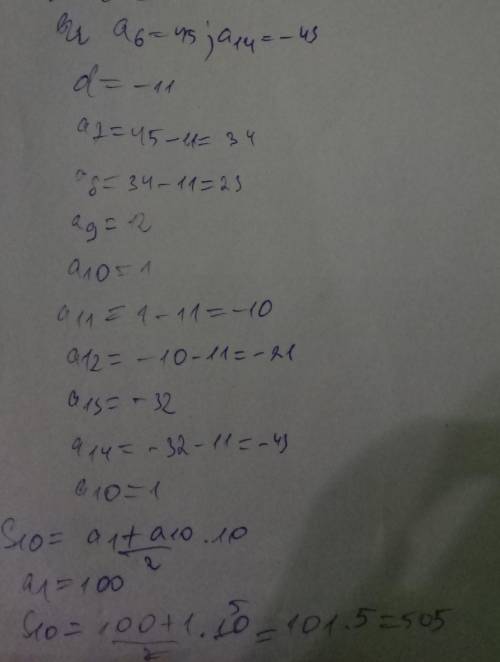 a6=45; a14=-43
d=-11
a7=45-11=34
a8=34-11=23
a9=12
a10=1
a11=1-11=-10
a12=-10-11=-21
a13=-32
a14=-32-11=-43
a10=1
S10=a1+a10/2·10
a1=100
S10=100+1/2·10 5=101·5=505